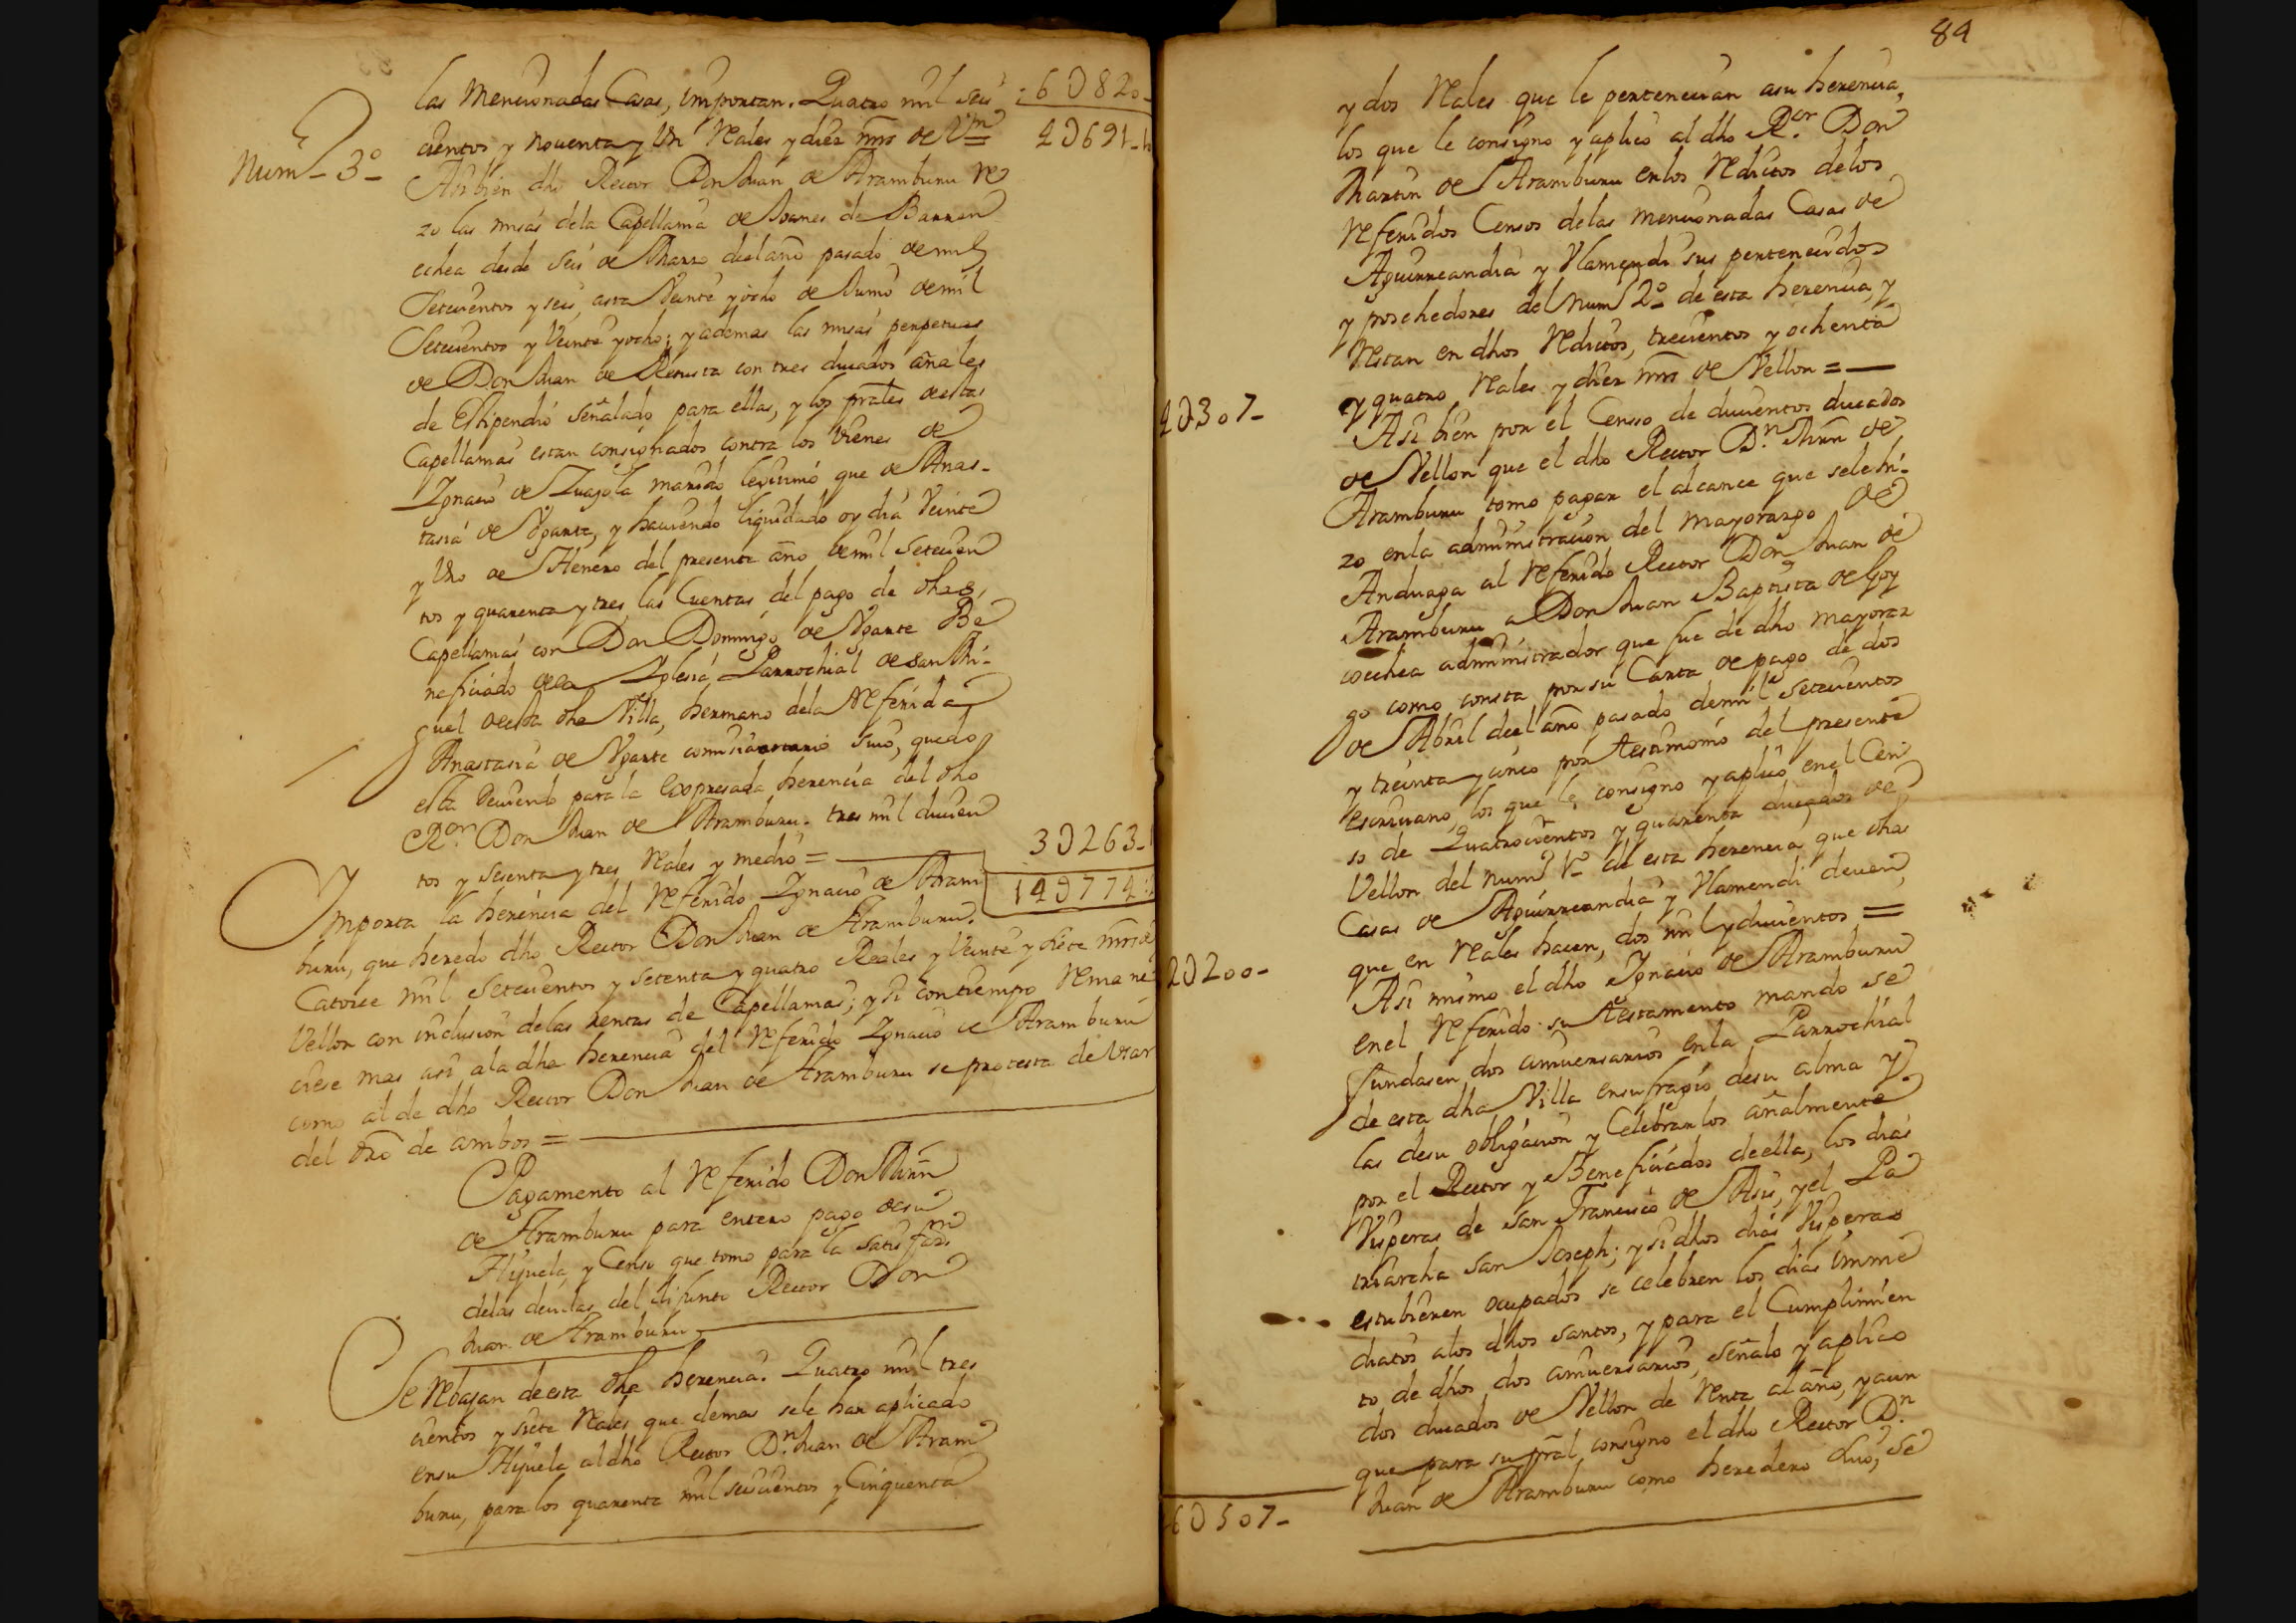 las mencionadas Casas, importan. Quatro mil seis : 6U820-
cientos y noventa y Un Reales y diez mrs de Vn= 4U691-1
Num- 3º-
Asi bien dho Rector Don Juan de Aramburu re
zo las misas dela Capellania de Joanes de Barren
echea desde seis de Marzo deel año pasado de mil
Setecientos y seis, asta Veinte y ocho de Junio de mil
Setecientos y Veinte y ocho; y ademas las misas perpetuas
de Don Juan de con tres ducados añales
de Estipendio señalado para ellas, y los prales de estas
Capellanias estan consignados contra los Vienes de
Ignacio de Zuazola marido lexitimo que de Anas-
tasia de Ugarte, y haviendo liquidado oy dia Veinte
y Uno de Henero del presente año de mil Setecien
tos y quarenta y tres las Cuentas del pago de dhas
Capellanias con Don Domingo de Ugarte Be
neficiado de la Yglesia Parrochial de San Mi-
guel de esta dha Villa, hermano dela Referida
Anastasia de Ugarte comisionario suio, quedo
esta deviendo para la expresada herencia del dho
Ror. Don Juan de Aramburu. tres mil ducien
tos y sesenta y tres Reales y medio = 3U263-1
Importa la herencia del Referido Ignacio de Aram 14U774:
buru, que heredo dho Rector Don Juan de Aramburu.
Catorce mil Setecientos y setenta y quatro Reales y Veinte y siete mrs de
Vellon con inclusion delas rentas de Capellanias; y si con tiempo Remane
ciese mas asi ala dha herencia del Referido Ignacio de Aramburu
como al de dho Rector Don Juan de Aramburu se protesta de Vsar
del dro de ambos =
Pagamento al Referido Don Martin
de Aramburu para entero pago de su
Hijuela, y Censo que tomo para la satisfazn
delas deudas del difunto Rector Don
Juan de Aramburu
Se Rebajan de esta dha herencia. Quatro mil tres
cientos y siete Reales que demas se le han aplicado
en su Hijuela al dho Rector Dn. Juan de Aram
buru, para los quarenta mil seiscientos y Cinquenta
84
y dos Reales que le pertenecian a su herencia,
los que le consigno y aplico al dho Ror. Don
Martin de Aramburu en los Reditos delos
Referidos Censos delas mencionadas Casas de
Aguirreandia y Vlamendi sus pertenecidos
y poschedores del Num 2º de esta herencia, y
Restan en dhos Reditos, trecientos y ochenta
y quatro Reales y diez mrs de Vellon =
4U307-
Asi bien por el Censo de ducientos ducados
de Vellon que el dho Rector Dn. Martin de
Aramburu tomo pagar el alcance que se le hi-
zo en la administracion del mayorazgo de
Anduaga al Referido Rector Don Juan de
Aramburu a Don Juan Baptista de Goy
cochea administrador que fue de dho mayoraz
go como consta por su Carta de pago de dos
de Abril deel año pasado de mil Setecientos
y treinta y cinco por testimonio del presente
escrivano, los que le consigno y aplico en el Cen
so de Quatrocientos y quarenta ducados de
Vellon del num 1º de esta herencia que dhas
Casas de Aguirreandia y Vlamendi deven,
que en Reales hacen, dos mil y ducientos =
2U200-
Asi mismo el dho Ignacio de Aramburu
en el Referido su testamento mando se
fundasen dos aniversarios en la Parrochial
de esta dha Villa en sufragio de su alma y
las de su obligacion y Celebrarlos añalmente
por el Rector y Beneficiados de ella, los dias
Visperas de San Francisco de Asis, y el Pa
triarcha San Joseph; y si dhos dias Visperas
estubieren ocupados se celebren los dias imme
diatos alos dhos santos, y para el Cumplimien
to de dhos dos aniversarios, señalo y aplico
dos ducados de Vellon de Renta al año, y aun
que para su pral consigno el dho Rector Dn.
Juan de Aramburu como heredero suio, se
6U507-